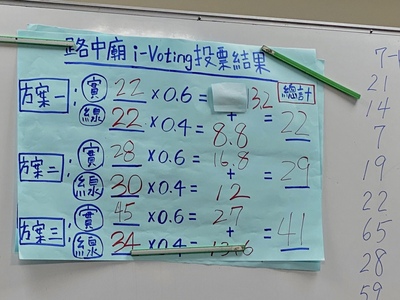 路中廟 i-Voting 投票結果
總計
方案一: 實 22 ×0.6= 3.2
+ = 22
線 22 ×0.4= 8.8
方案二: 實 28 ×0.6= 16.8
+ = 29
線 30 ×0.4= 12
方案三: 實 45 ×0.6= 27
+ = 41
線 34 ×0.4= 13.6
21
14
7
19
22
65
28
59